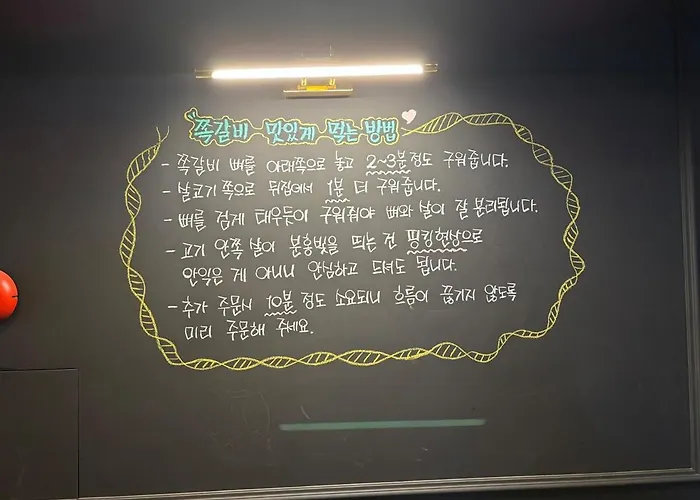 쪽갈비 맛있게 먹는 방법
- 쪽갈비 뼈를 아래쪽으로 놓고 2~3분정도 구워줍니다.
- 살고기 쪽으로 뒤집에서 1분 더 구워줍니다.
- 뼈를 검게 태우듯이 구워줘야 뼈와 살이 잘 분리됩니다.
- 고기 안쪽 살이 분홍빛을 띄는 건 핑킹현상으로
안익은 게 아니니 안심하고 드셔도 됩니다.
- 추가 주문시 10분 정도 소요되니 흐름이 끊기지 않도록
미리 주문해 주세요.